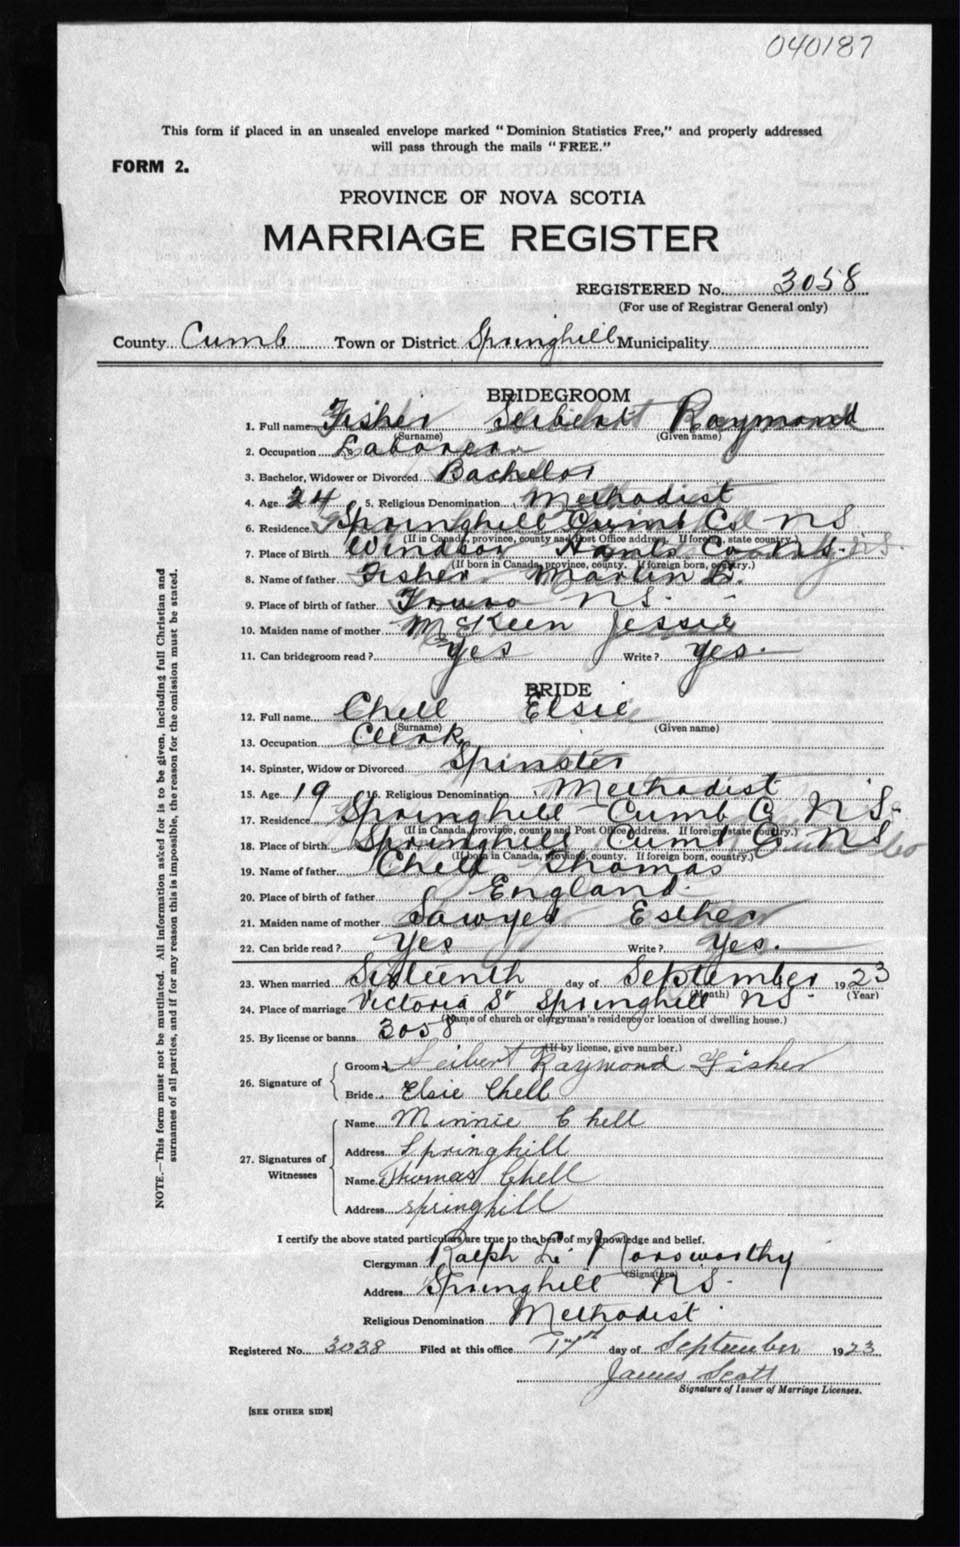 040187
This form if placed in an unsealed envelope marked "Dominion Statistics Free," and properly addressed
will pass through the mails "FREE."
FORM 2.
PROVINCE OF NOVA SCOTIA
MARRIAGE REGISTER
REGISTERED No. 3058
(For use of Registrar General only)
County Cumb Town or District Springhill Municipality
BRIDEGROOM
1. Full name Fisher Seibert Raymond
(Surname) (Given name)
2. Occupation Laborer
3. Bachelor, Widower or Divorced Bachelor
4. Age 24 5. Religious Denomination Methodist
6. Residence Springhill Cumb Co NS
(If in Canada, province, county and Post Office address. If foreign, state country.)
7. Place of Birth Windsor Hants Co N.S.
(If born in Canada, province, county. If foreign born, country.)
8. Name of father Fisher Martin
9. Place of birth of father Truro N S.
10. Maiden name of mother McKeen Jessie
11. Can bridegroom read? Yes Write? Yes.
BRIDE
12. Full name Chell Elsie
(Surname) (Given name)
13. Occupation Clerk
14. Spinster, Widow or Divorced Spinster
15. Age 19 16. Religious Denomination Methodist
17. Residence Springhill Cumb Co NS.
(If in Canada, province, county and Post Office Address. If foreign state country.)
18. Place of birth Springhill Cumb Co NS
(If born in Canada, province, county. If foreign born, country.)
19. Name of father Chell Thomas
20. Place of birth of father England.
21. Maiden name of mother Sawyer Esther
22. Can bride read? Yes Write? Yes.
23. When married Sixteenth day of September 1923
(Month) (Year)
24. Place of marriage Victoria St Springhill NS
(Name of church or clergyman's residence or location of dwelling house.)
25. By license or banns 3058
(If by license, give number.)
26. Signature of Groom Seibert Raymond Fisher
Bride Elsie Chell
27. Signatures of Witnesses
Name Minnie Chell
Address Springhill
Name Thomas Chell
Address Springhill
I certify the above stated particulars are true to the best of my knowledge and belief.
Clergyman Ralph E. Norsworthy
(Signature)
Address Springhill NS.
Religious Denomination Methodist.
Registered No. 3038 Filed at this office 17th day of September 1923
James Scott
Signature of Issuer of Marriage Licenses.
[SEE OTHER SIDE]
NOTE.—This form must not be mutilated. All information asked for is to be given, including full Christian and
surnames of all parties, and if for any reason this is impossible, the reason for the omission must be stated.